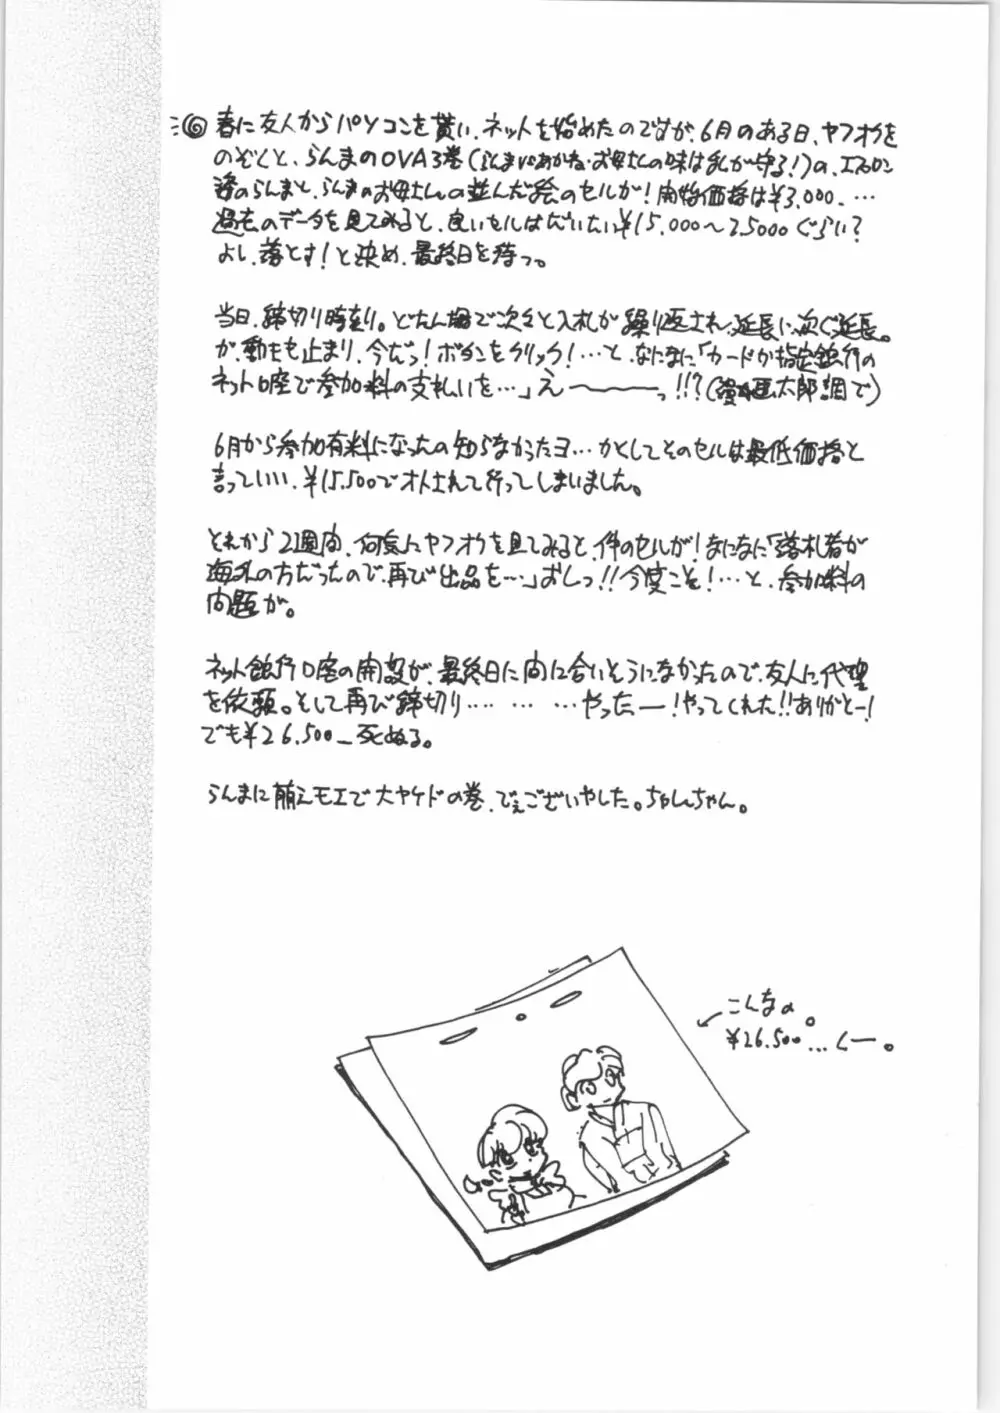 春に友人からパソコンを貰い、ネットを始めたのですが、6月のある日、ヤフオクを
のぞくと、らんまのOVA3巻(らんまVSあかね・お母さんの味は乱が守る!)の、エプロン
姿のらんまと、らんまのお母さんの並んだ絵のセルが!開始価格は¥3,000、…
過去のデータを見てみると、良いセルはだいたい¥15,000〜25000ぐらい?
よし、落とす!と決め、最終日を待つ。
当日、締切り時刻。どたん場で次々と入札が繰り返され、延長に次ぐ延長。
が、動きも止まり、今だっ!ボタンをクリック!…と、なになに「カードか指定銀行の
ネット口座で参加料の支払いを…」え〜〜〜っ!!?(漫☆画太郎調で)
6月から参加有料になったの知らなかったヨ…かとしてそのセルは最低価格と
言っていい、¥15,500でオトされて行ってしまいました。
それから2週間、何度にヤフオクを見てみると、件のセルが!なになに「落札者が
海外の方だったので、再び出品を…」おしっ!!今度こそ!…と、参加料の
問題が。
ネット銀行口座の開設が、最終日に間に合いそうになかったので、友人に代理
を依頼。そして再び締切り…… … …やったー!やってくれた!!ありがとー!
でも¥26,500_死ぬる。
らんまに萌えモエで大ヤケドの巻、でぇございやした。ちゃんちゃん。
こんなの。
¥26,500…くー。